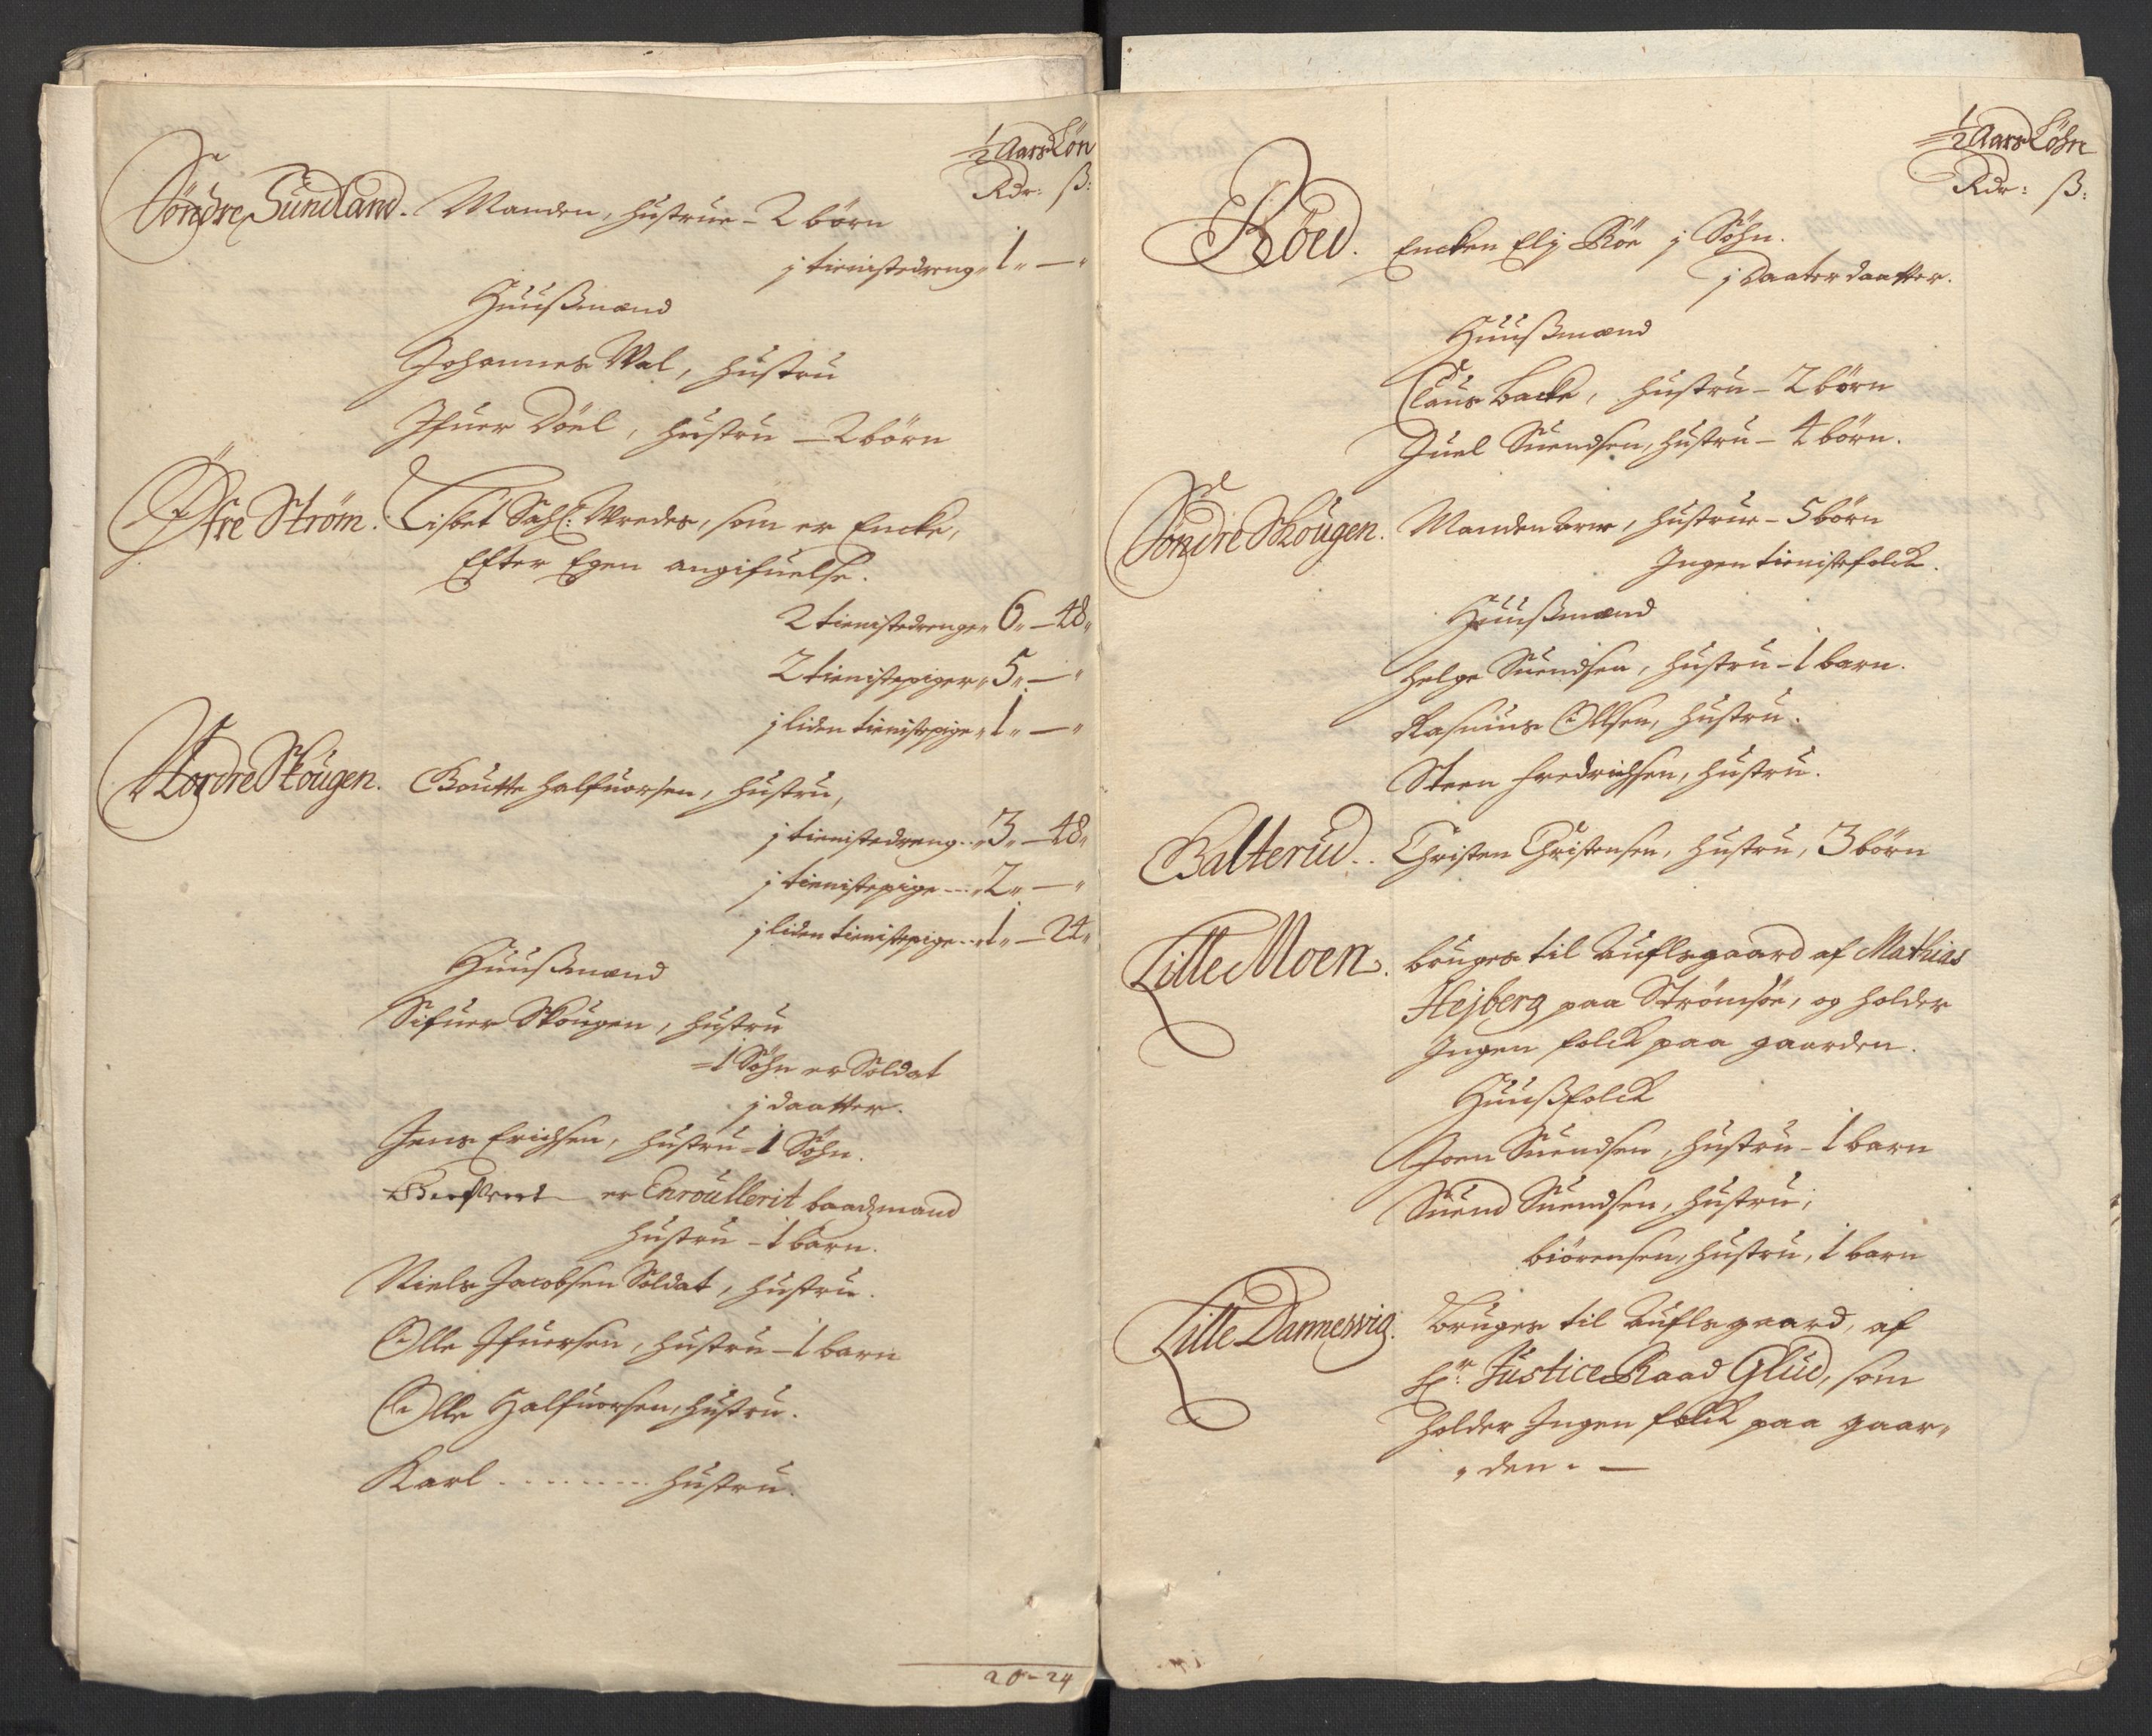 ½ Aars Løn
Rdr: ß:
Söndre Sundland. Manden, hustrue - 2 börn
j tienistedreng „ 1 „ — „
Huußmænd
Johannes Wal, hustru
Ifuer Döel, hustru - 2 börn
Øfre Ström. Lisbet Sahl: Wredes, som er Encke,
Efter Egen angifuelse.
2 tienistedrenge „ 6 „ — 48 „
2 tienistepiger „ 5 „ — „
j liden tienistepige „ 1 „ — „
Nordre Skougen. Goutte Halfuorsen, hustru,
j tienistedreng .. „ 3 „ — 48 „
j tienistepige --- „ 2 „ — „
j liden tienistepige .. „ 1 „ — 24 „
Huußmænd
Sifuer Skougen, hustru
- 1 Söhn er Soldat
j daatter.
Jens Erichsen, hustru - 1 Söhn.
er Enroullerit baadzmand
hustru - 1 barn.
Niels Jacobsen Soldat, hustru.
Olle Ifuersen, hustru - 1 barn
Olle Halfuorsen, hustru.
Karl ......... hustru.
20 - 24
½ Aars Löhn
Rdr: ß:
Röed. Encken Elj Röe j Söhn.
j Daater daatter.
Huußmænd
Claus Backe, hustru - 2 börn
Juel Suendsen, hustru - 4 börn.
Söndre Skougen. Manden, hustrue - 5 börn
Ingen tienistefolck.
Huußmænd
Helge Suendsen, hustru - 1 barn.
Rasmus Ollsen, hustru.
Steen Fredrichsen, hustru.
Balterud .. Christen Christensen, hustru, 3 börn
Lille Moen. bruges til Aufls gaard af Mathias
Hejberg paa Strömsöe, og holder
Ingen folck paa gaarden.
Huußfolck
Joen Suendsen, hustru - 1 barn
Suend Suendsen, hustru;
biörensen, hustru, 1 barn
Lille Dannewig. Bruges til Aufls gaard, af
Hr: Justice Raad Glud, som
holder Ingen folck paa gaar„
„den. —